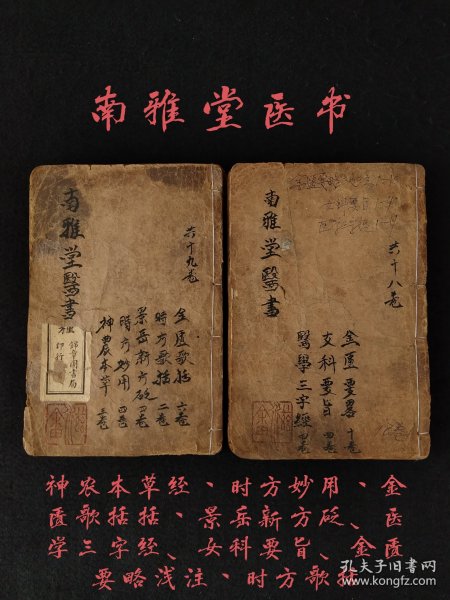 南雅堂医书
南雅堂醫書
共十九卷
金匱歌括 六卷
時方歌括 二卷
景岳新方砭 四卷
時方妙用 四卷
神農本草 三卷
錦章圖書局
印行
南雅堂醫書
共十八卷
金匱要畧 十卷
女科要旨 四卷
醫學三字經 四卷
神农本草经、时方妙用、金
匮歌括括、景岳新方砭、医
学三字经、女科要旨、金匮
要略浅注、时方歌括
孔夫子旧书网
kongfz.com